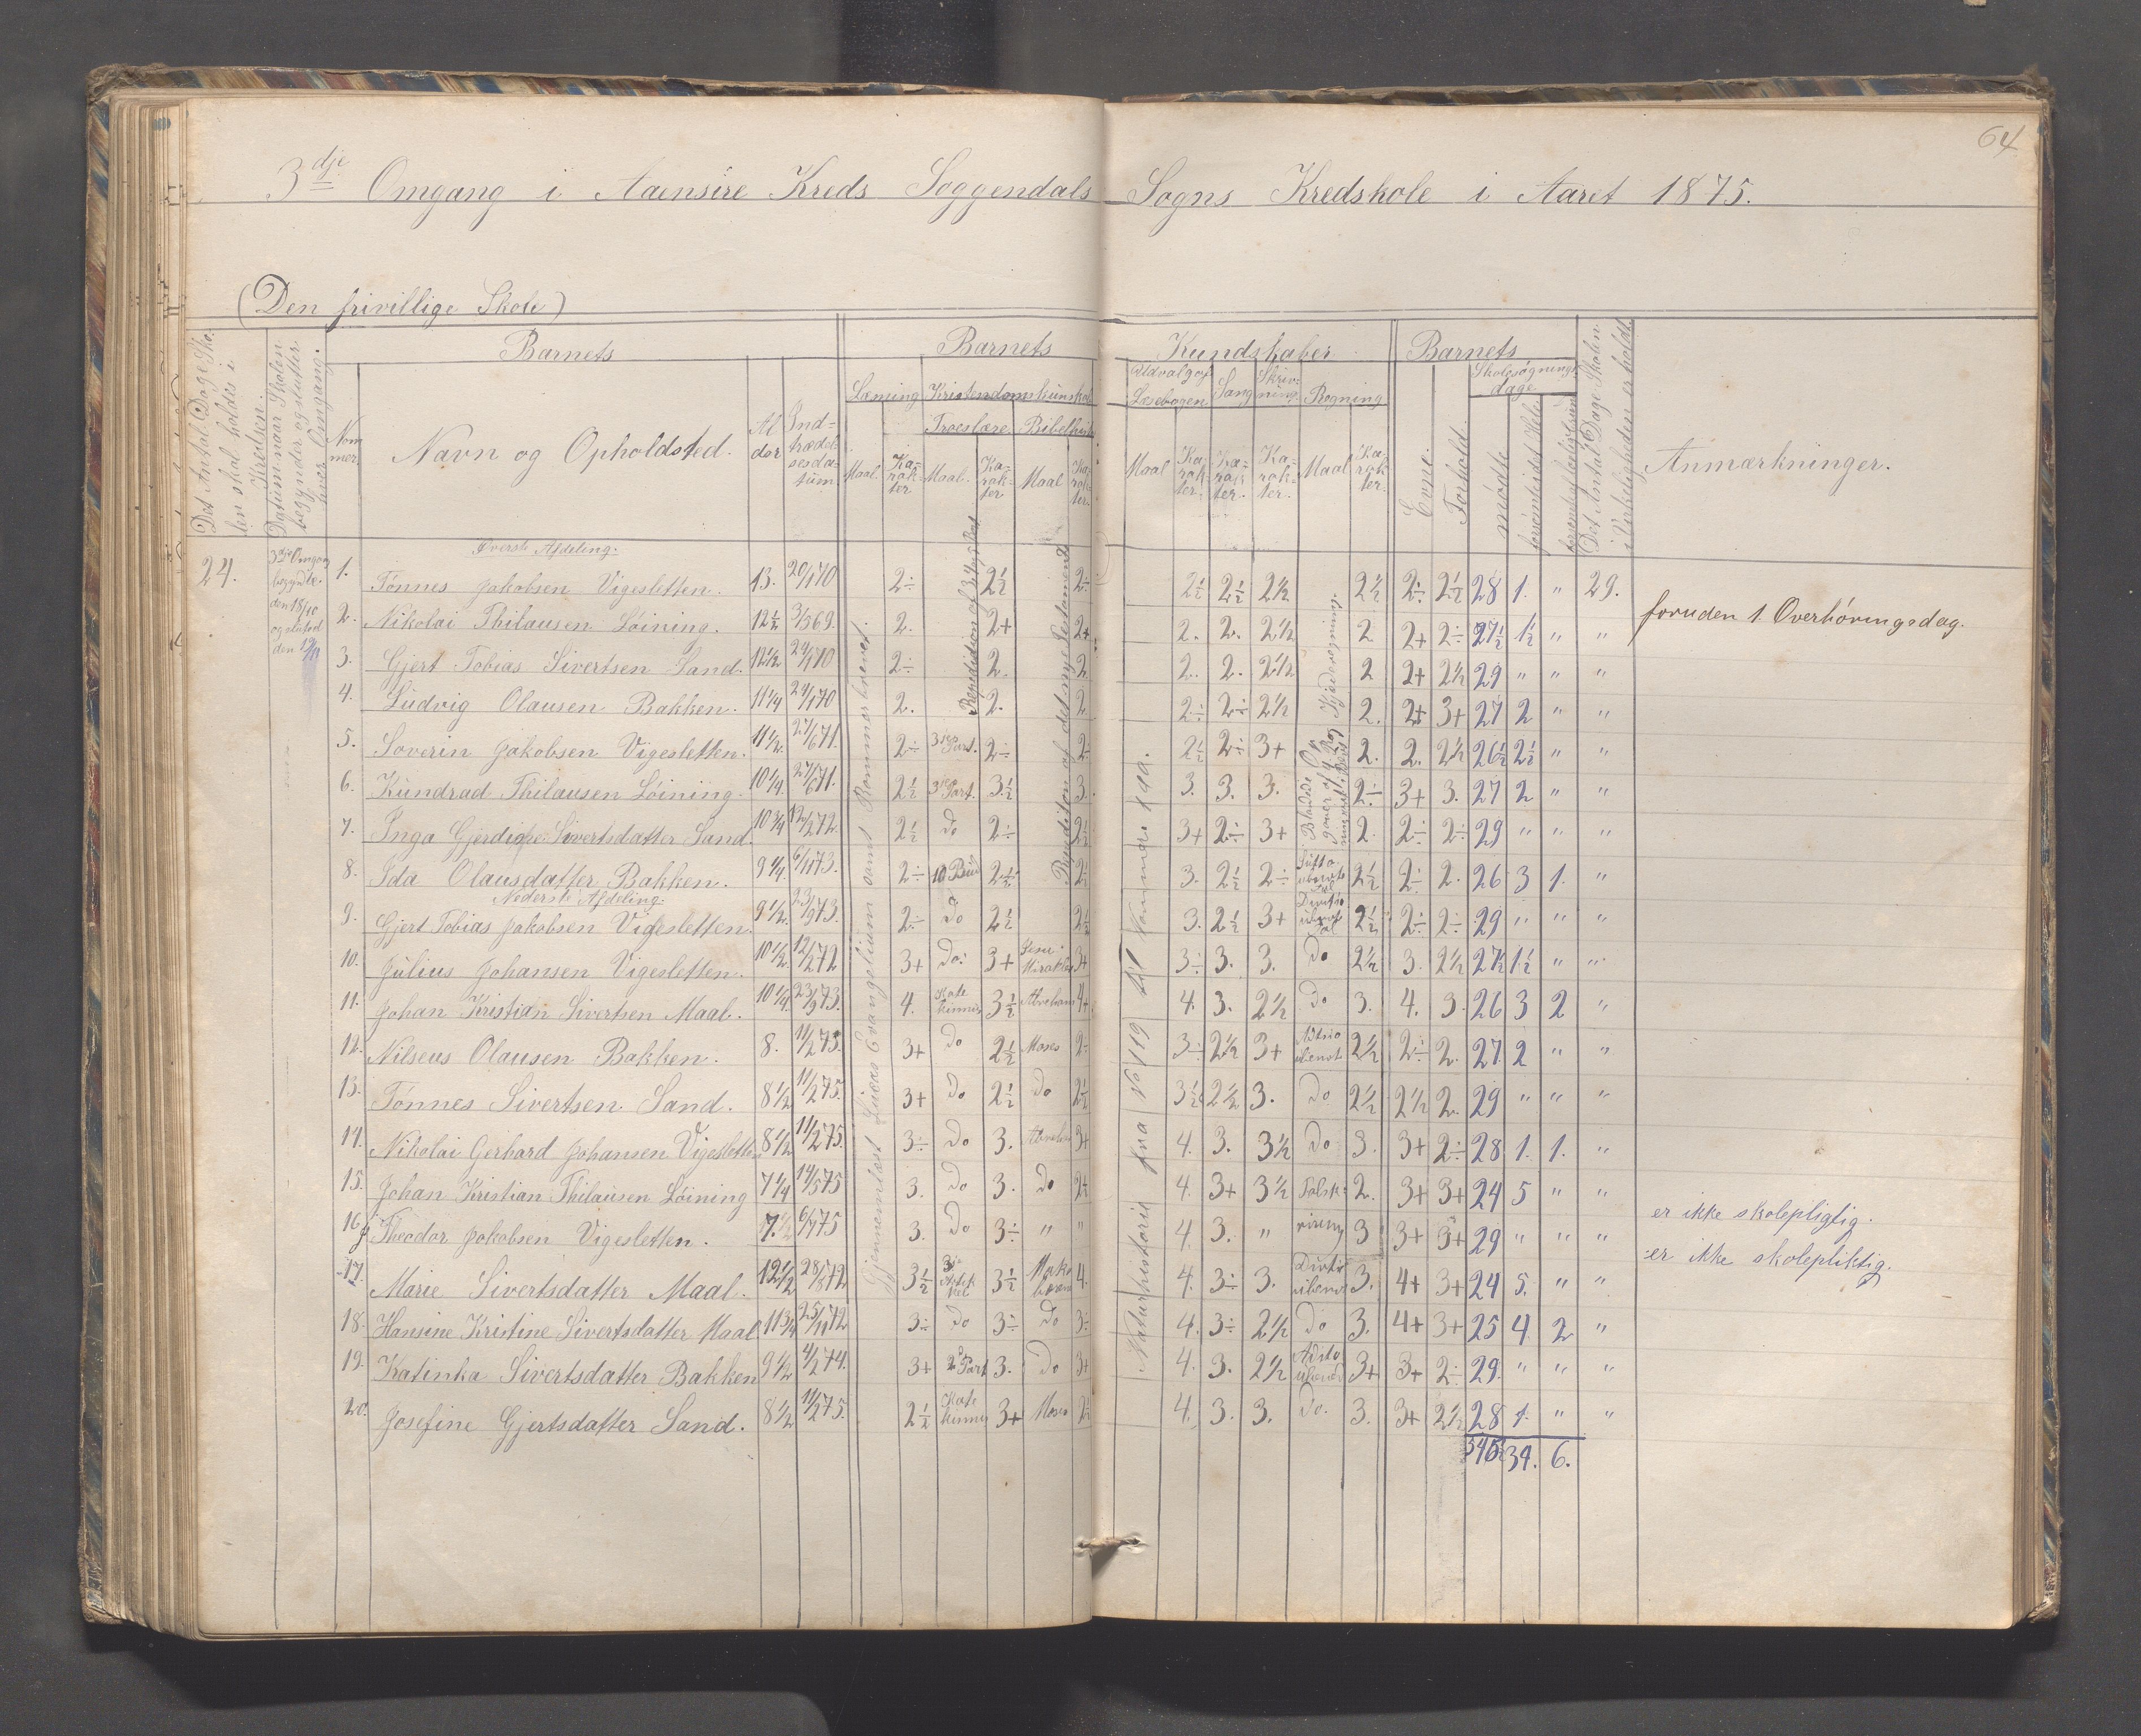 64
3dje Omgang i Aaensire Kreds Soggendals Sogns Kredskole i Aaret 1875.
(Den frivillige Skole)
Det Antal Dage Skolen skal holdes i Kredsen.
Datum naar Skolen begynder og slutter hver Omgang.
Nommer.
Barnets
Navn og Opholdsted.
Alder
Indtrædelsesdatum.
Barnets Kundskaber
Læsning
Kristendomskundskab
Troeslære. Bibelhist.
Maal. Karakter Maal. Karakter Maal Karakter.
Udvalg af Læsebogen Sang Skrivning Regning
Maal Karakter. Karakter. Karakter. Maal Karakter.
Barnets
Evne. Forhold.
Skolesøgningsdage
mødte
Det Antal Dage Skolen i Virkeligheden er holdt.
Anmærkninger.
24.
3dje Omgang begyndte den 18/10 og sluttet den 19/11
Øverste Afdeling.
1. Tønnes Jakobsen Vigesletten. 13. 20/1 70 2÷ 2½ 2÷ 2½ 2½ 2½ 2½ 2÷ 2½ 28 1. " 29.
foruden 1 Overhøringsdag.
2. Nikolai Thilausen Løining. 12½ 3/5 69. 2. 2+ 2+ 2. 2. 2½ 2 2+ 2÷ 27½ 1½ " "
3. Gjert Tobias Sivertsen Sand. 12½ 24/1 70 2÷ 2. 2 2. 2. 2½ 2 2+ 2½ 29 " " "
4. Ludvig Olausen Bakken. 11¼ 24/1 70 2. 2. 2 2÷ 2÷ 2½ 2. 2+ 3+ 27 2 " "
5. Soverin Jakobsen Vigesletten. 11½ 27/6 71. 2÷ 3die Part. 2÷ 2÷ 2½ 2÷ 3+ 2. 2. 2½ 26½ 2½ " "
6. Kundrad Thilausen Løining. 10¼ 27/6 71. 2½ 3die Part. 3½ 3. 3. 3. 3. 2÷ 3+ 3. 27 2 " "
7. Inga Gjerdine Sivertsdatter Sand. 10¾ 12/2 72. 2½ do 2÷ 2½ 3+ 2÷ 3+ 2. 2÷ 2÷ 29 " " "
8. Ida Olausdatter Bakken. 9¼ 6/11 73. 2÷ 10 Bud 2½ 2½ 3. 2½ 2÷ 2½ 2÷ 2. 26 3 1. "
Nederste Afdeling.
9. Gjert Tobias Jakobsen Vigesletten. 9½. 23/9 73. 2÷ Do 2½ 2½ 3. 2½ 3+ 2½ 2÷ 2÷ 29 " " "
10. Julius Johansen Vigesletten. 10½. 12/2 72 3+ Do. 3+ Jesu Mirakler 3+ 3÷ 3. 3. Do 2½ 3. 2½ 27½ 1½ " "
11. Johan Kristian Sivertsen Maal. 10¼. 23/9 73. 4. Katekismus 3½ Abraham 4+ 4. 3. 2½ do 3. 4. 3. 26 3 2 "
12. Nilseus Olausen Bakken. 8. 11/2 75. 3+ do 2½ Moses 2÷ 3÷ 2½ 3+ 2½ 2÷ 2. 27. 2 " "
13. Tønnes Sivertsen Sand. 8½ 11/2 75. 3+ do 2½ Do 2½ 3½ 2½ 3. Do 2½ 2½ 2. 29 " " "
14. Nikolai Gerhard Johansen Vigesletten 8½ 11/2 75. 3÷ Do 3. 3+ 4. 3. 3½ Do 3. 3+ 2÷ 28 1. 1. "
15. Johan Kristian Thilausen Løining 7¼ 14/5 75 3. Do 3. Do 2½ 4. 3+ 3½ 2. 3+ 3+ 24 5 " "
er ikke skolepligtig.
16. Theodor Jakobsen Vigesletten. 7.½ 6/7 75 3. Do 3÷ " " 4. 3. " 3 3+ 3+ 29 " " "
er ikke skolepliktig.
17. Marie Sivertsdatter Maal. 12½ 28/8 72 3½ 3½ 4. 4. 3÷ 3. 3. 4+ 3+ 24 5. " "
18. Hansine Kristine Sivertsdatter Maal 11¾ 25/11 72 3÷ do 3÷ Do 3÷ 4. 3÷ 2½ do 3. 4+ 3+ 25 4 2 "
19. Katinka Sivertsdatter Bakken 9½ 4/2 74. 3+ 2d Part 3. Do 3+ 4. 3. 2½ 3+ 3+ 2÷ 29. " " "
20. Josefine Gjertsdatter Sand. 8½ 11/2 75. 2½ 3+ Moses 2½ 4. 3. 3. Do. 3. 3+ 2½ 28 1. " "
34. 6.
Gjennemlæst Lucas Evangelium samt Rommerbrevet.
Repedition af det nye Testamente
Naturhistorie fra No 119 til